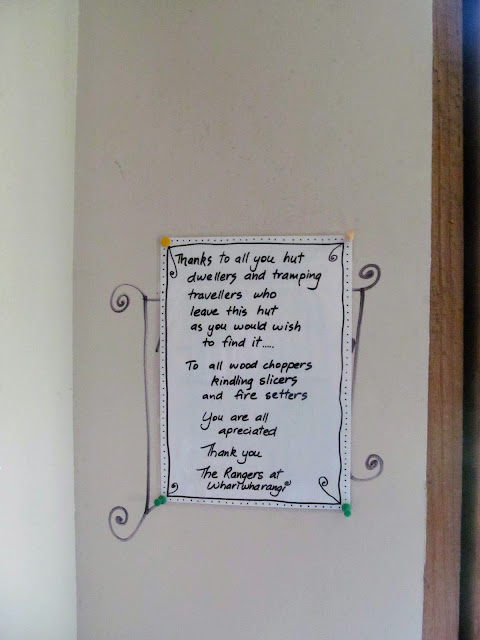 Thanks to all you hut
dwellers and tramping
travellers who
leave this hut
as you would wish
to find it.....
To all wood choppers
kindling slicers
and fire setters
You are all
apreciated
Thank you
The Rangers at
Whariwharangi